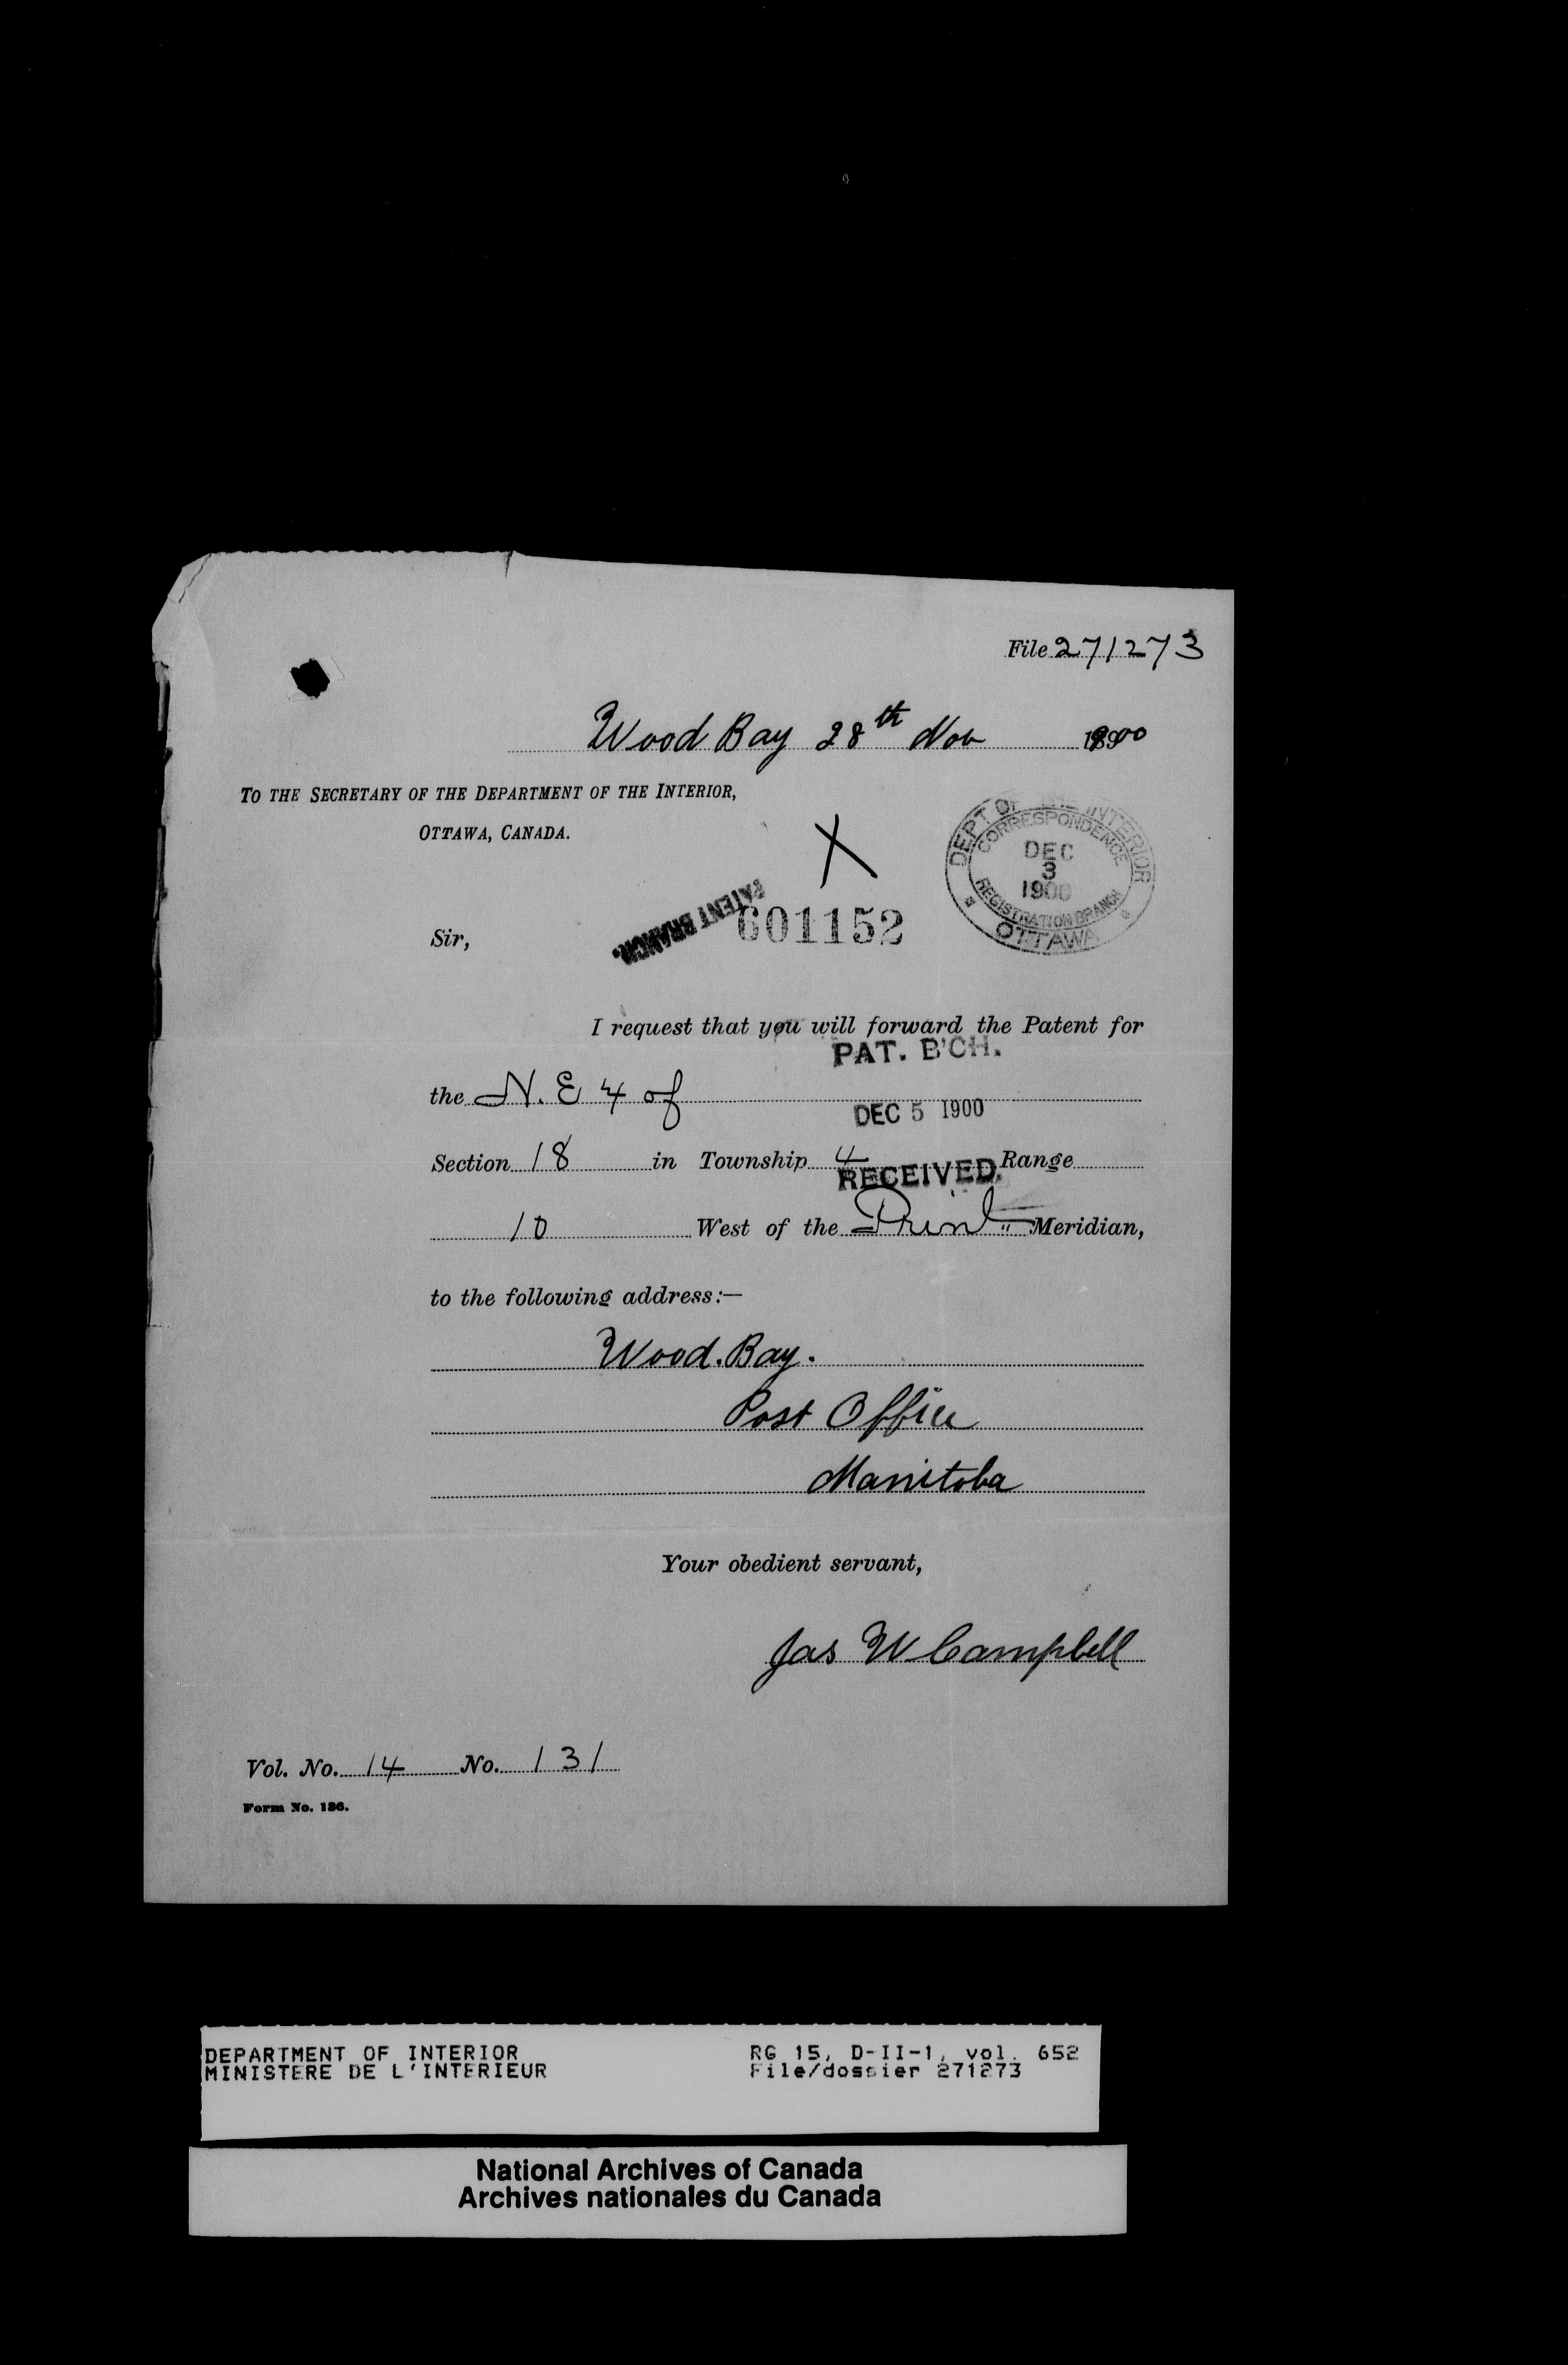 File 271273
Wood Bay 28th Nov 1900
TO THE SECRETARY OF THE DEPARTMENT OF THE INTERIOR,
OTTAWA, CANADA.
DEPT OF THE INTERIOR
CORRESPONDENCE
DEC
3
1900
REGISTRATION BRANCH
OTTAWA
PATENT BRANCH.
601152
Sir,
I request that you will forward the Patent for
PAT. B'CH.
the N. E 4 of
DEC 5 1900
Section 18 in Township 4 Range
RECEIVED.
10 West of the Prin Meridian,
to the following address:—
Wood. Bay.
Post Office
Manitoba
Your obedient servant,
Jas W Campbell
Vol. No. 14 No. 131
Form No. 136.
DEPARTMENT OF INTERIOR RG 15, D-II-1, vol. 652
MINISTERE DE L'INTERIEUR File/dossier 271273
National Archives of Canada
Archives nationales du Canada